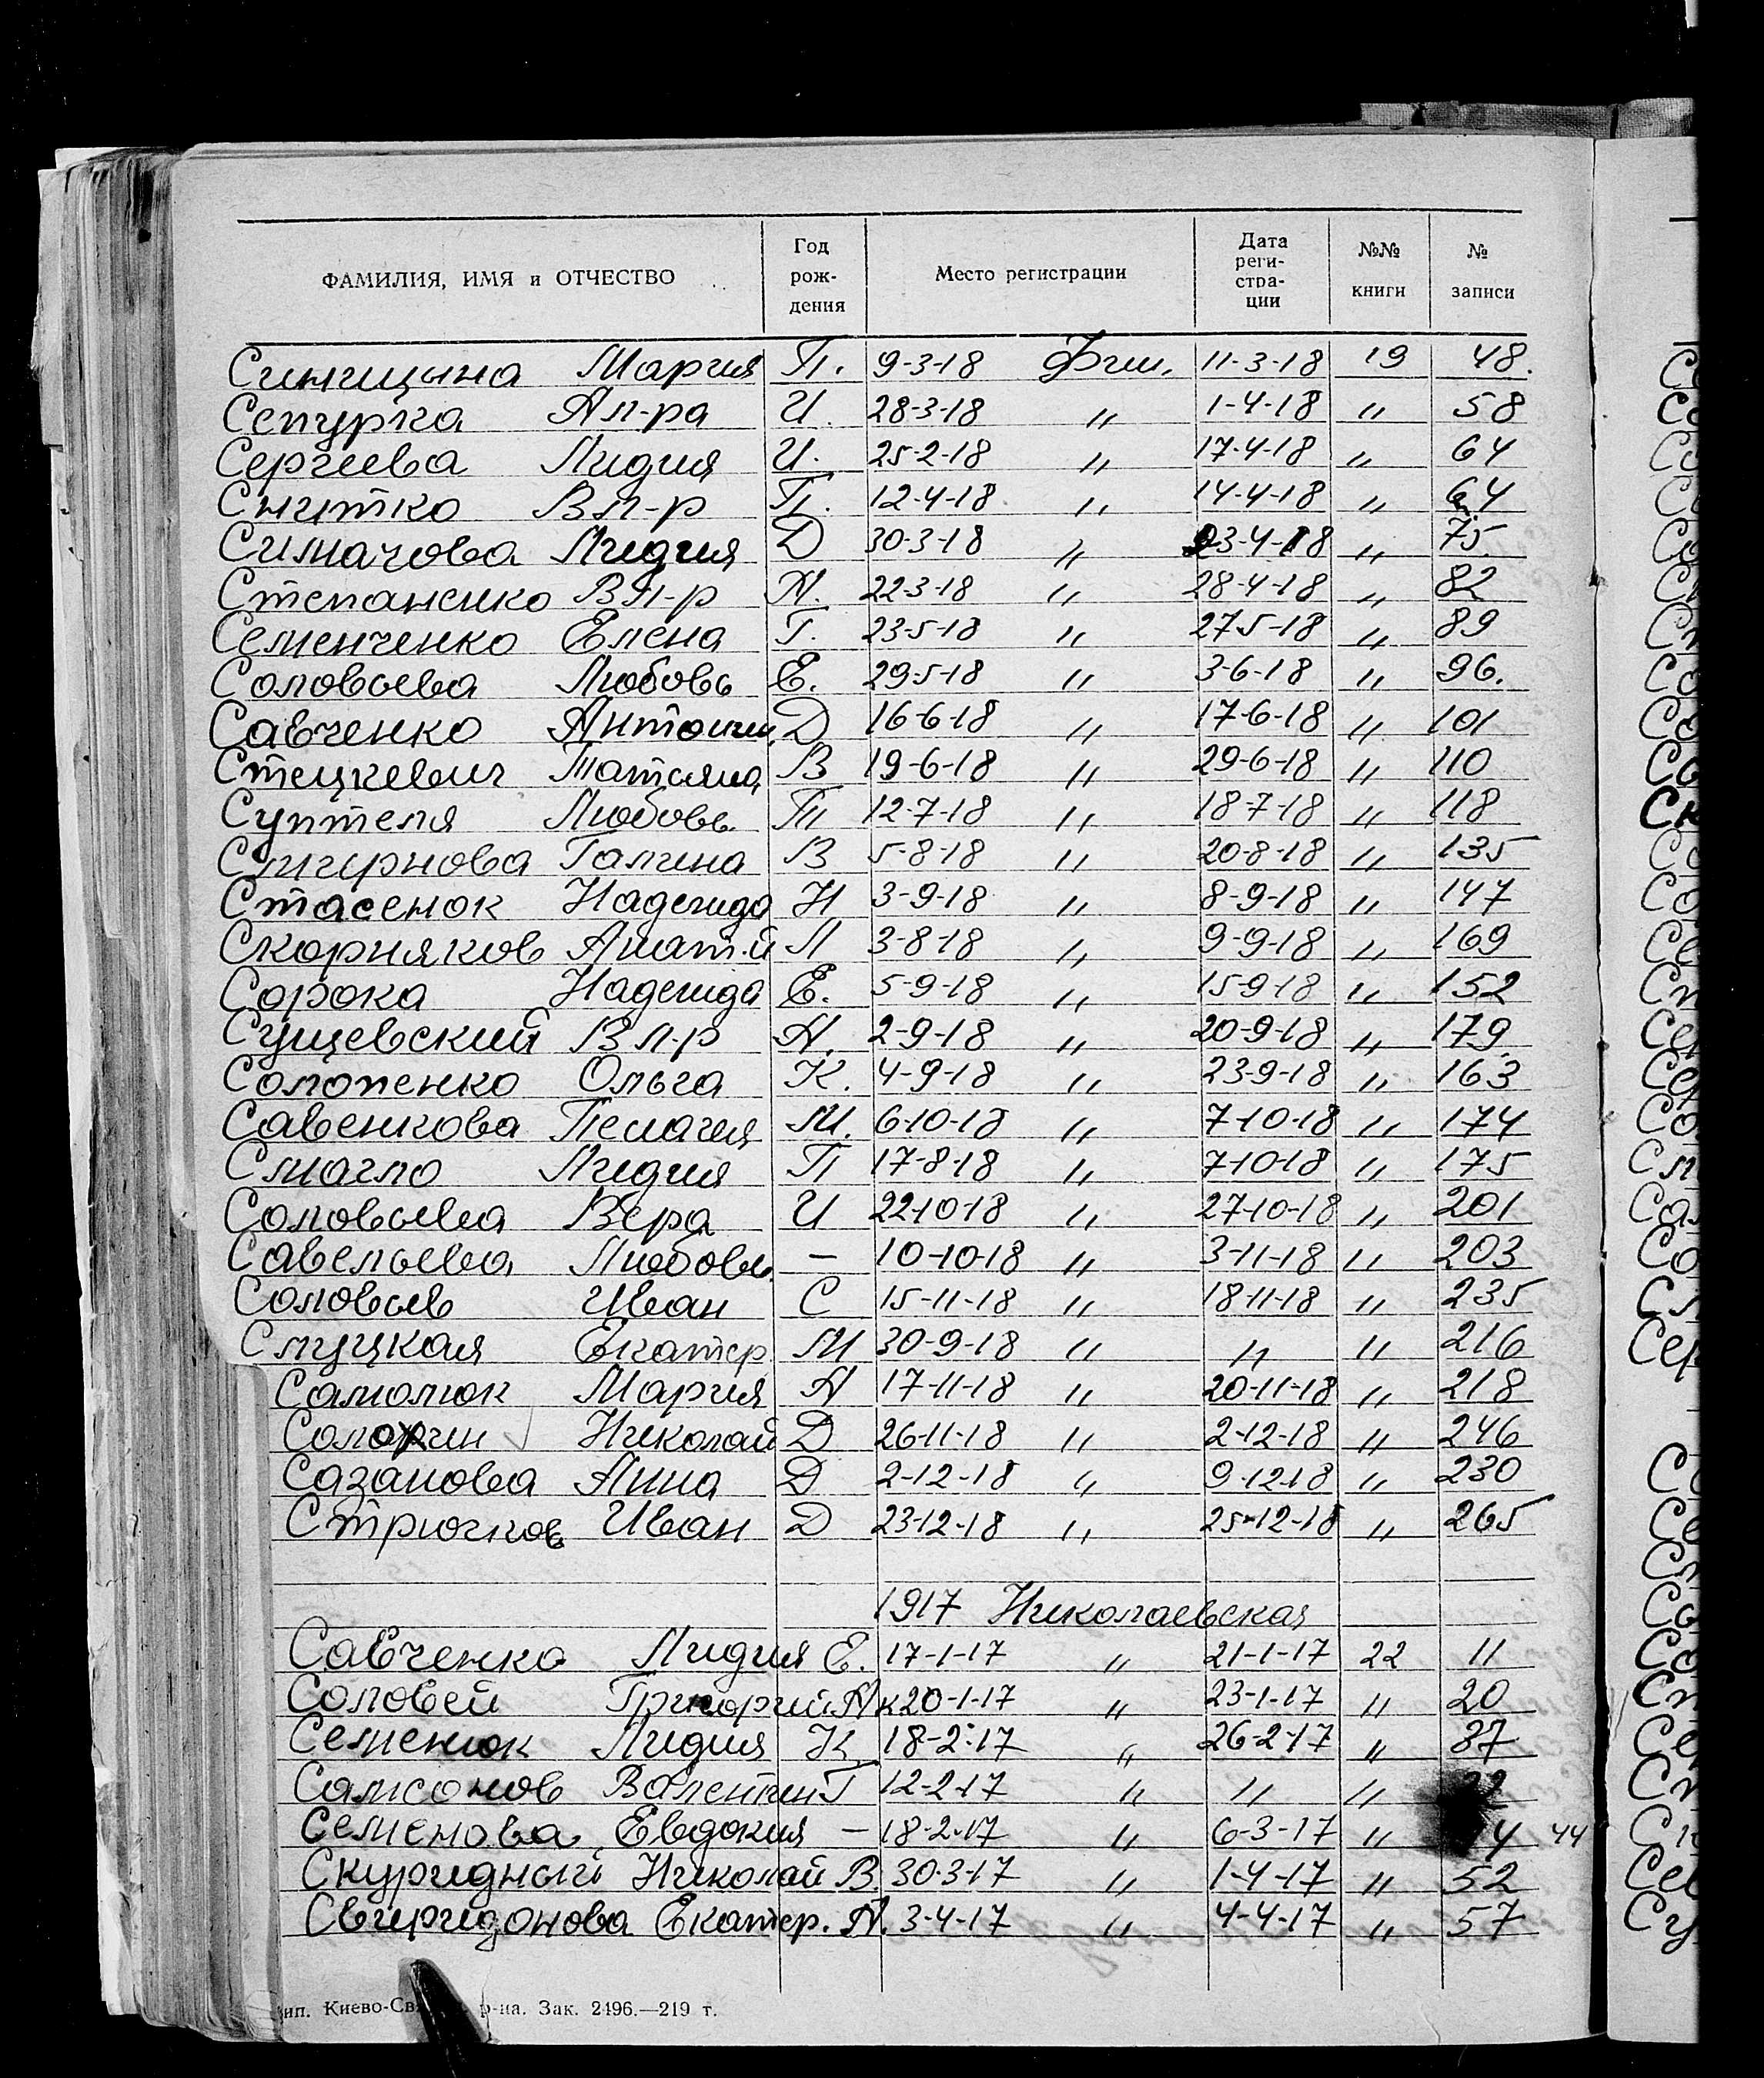 ФАМИЛИЯ, ИМЯ и ОТЧЕСТВО Год рож- дения Место регистрации Дата реги- стра- ции №№ книги № записи
Синицына Мария П. 9-3-18 11-3-18 19 48.
Сепурка Ал-ра И. 28-3-18 " 1-4-18 " 58
Сергиева Лидия И. 25-2-18 " 17-4-18 " 64
Снитко Вл-р П. 12-4-18 " 14-4-18 " 64
Симачова Лидия Д 30-3-18 " 23-4-18 " 75
Степаненко Вл-р А. 22-3-18 " 28-4-18 " 82
Семенченко Елена Г. 23-5-18 " 27-5-18 " 89
Соловьева Любовь Е. 29-5-18 " 3-6-18 " 96.
Савченко Антонин. Д 16-6-18 " 17-6-18 " 101
Стецкевич Татьяна В 19-6-18 " 29-6-18 " 110
Суптеля Любовь Т 12-7-18 " 18-7-18 " 118
Смирнова Галина В 5-8-18 " 20-8-18 " 135
Стасенюк Надежда Н 3-9-18 " 8-9-18 " 147
Скорняков Анат-й Л 3-8-18 " 9-9-18 " 169
Сорока Надежда Е. 5-9-18 " 15-9-18 " 152
Сущевский Вл-р А. 2-9-18 " 20-9-18 " 179
Солопенко Ольга К. 4-9-18 " 23-9-18 " 163
Савенкова Пелагея М. 6-10-18 " 7-10-18 " 174
Смагло Лидия П 17-8-18 " 7-10-18 " 175
Соловьева Вера И 22-10-18 " 27-10-18 " 201
Савельева Любовь — 10-10-18 " 3-11-18 " 203
Соловьев Иван С 15-11-18 " 18-11-18 " 235
Слуцкая Екатер М 30-9-18 " " " 216
Самолюк Мария А 17-11-18 " 20-11-18 " 218
Николай Д 26-11-18 " 2-12-18 " 246
Сазанова Анна Д 2-12-18 " 9-12-18 " 230
Стрючков Иван Д 23-12-18 " 25-12-18 " 265
1917 Николаевская
Савченко Лидия Е. 17-1-17 " 21-1-17 22 11
Соловей Григорий Ак 20-1-17 " 23-1-17 " 20
Семенюк Лидия К 18-2-17 " 26-2-17 " 37
Самсонов Валентин Г 12-2-17 " " "
Семенова Евдокия — 18-2-17 " 6-3-17 " 4 44
Скуридный Николай В. 30-3-17 " 1-4-17 " 52
Свиридонова Екатер. А. 3-4-17 " 4-4-17 " 57
ип. Киево-Св р-на. Зак. 2496.—219 т.